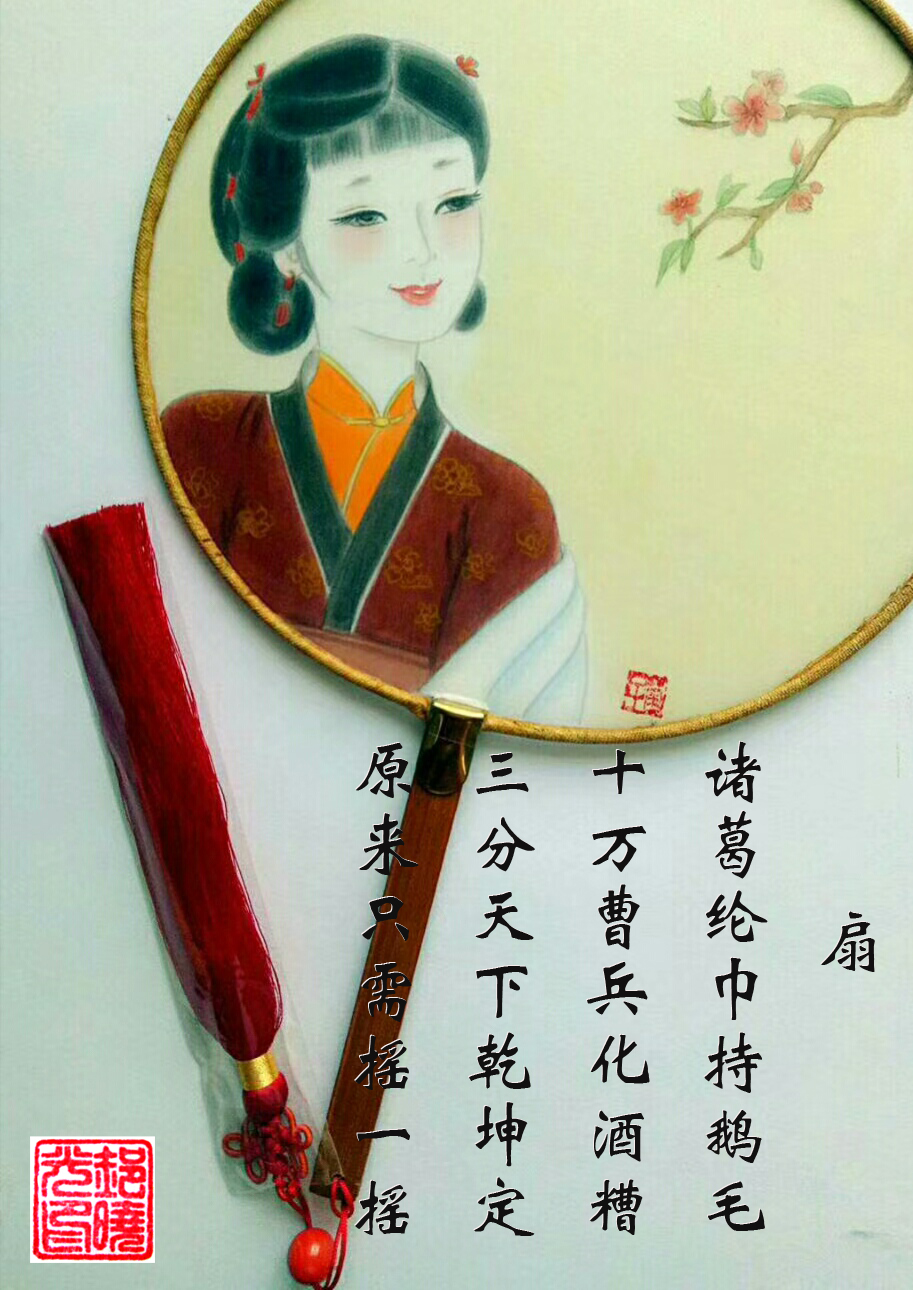 扇
诸葛纶巾持鹅毛
十万曹兵化酒糟
三分天下乾坤定
原来只需摇一摇